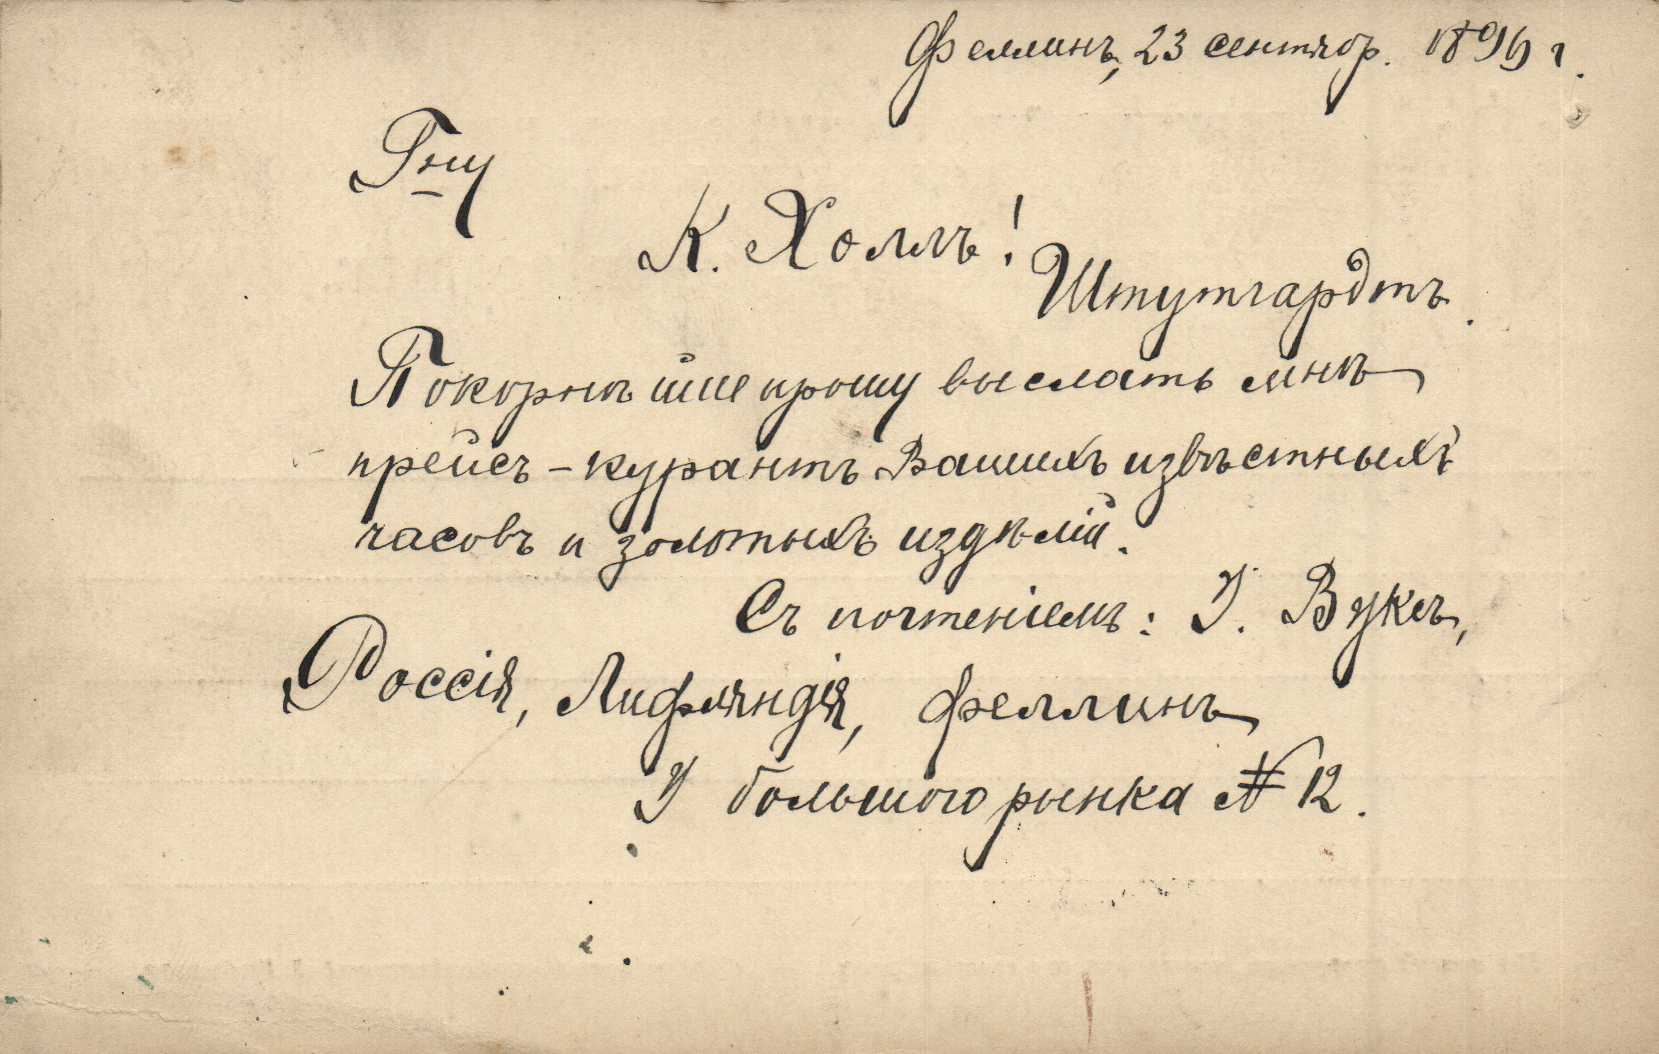 Феллинъ, 23 сентябр. 1896 г.
Гну
К. Холлъ!
Штутгардтъ.
Покорнѣйше прошу выслать мнѣ
прейсъ-курантъ Вашихъ извѣстныхъ
часовъ и золотыхъ издѣлій.
Съ почтеніемъ: У. Вуксъ,
Россія, Лифляндія, Феллинъ
У большого рынка № 12.